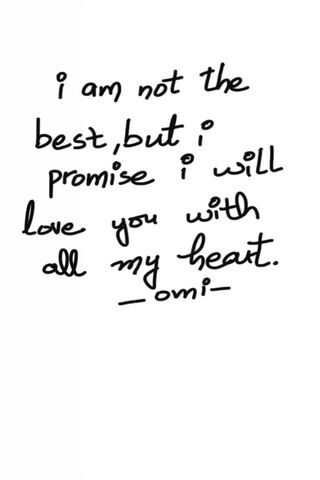 i am not the
best, but i
promise i will
love you with
all my heart.
- omi -